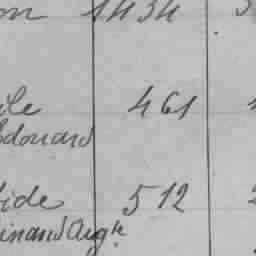 on 1434
ile 461
Edouard
ide 512
inand Augte